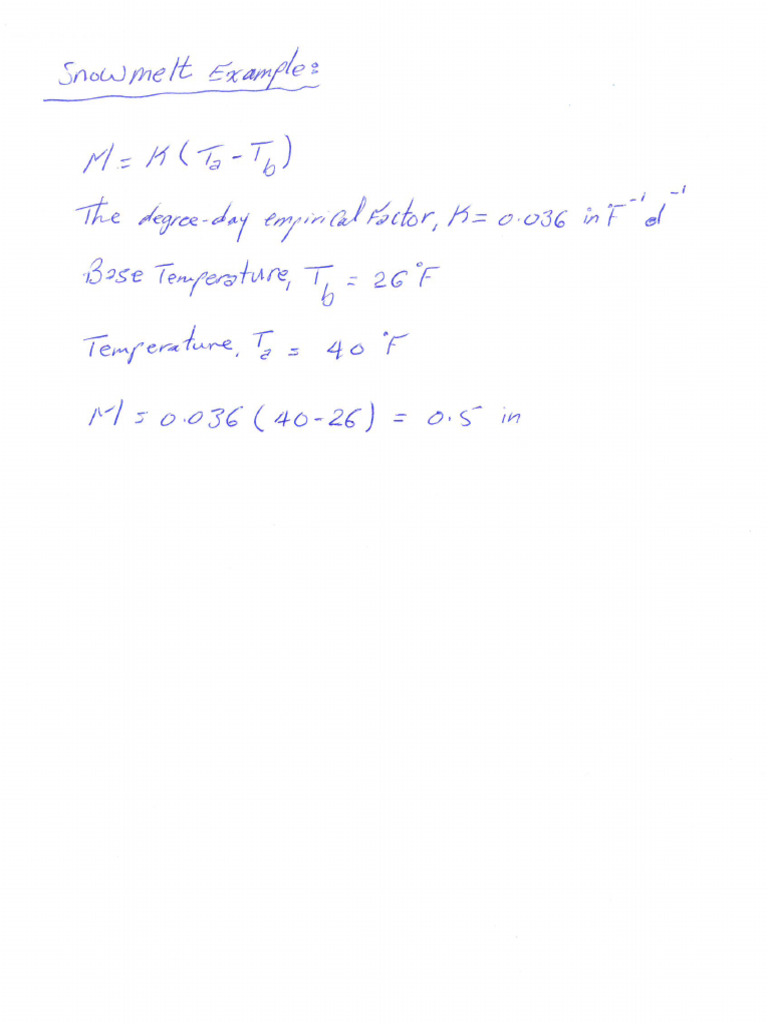 Snowmelt Example:
M = K (Ta - Tb)
The degree-day empirical Factor, K = 0.036 in °F⁻¹ d⁻¹
Base Temperature, Tb = 26 °F
Temperature, Ta = 40 °F
M = 0.036 (40-26) = 0.5 in